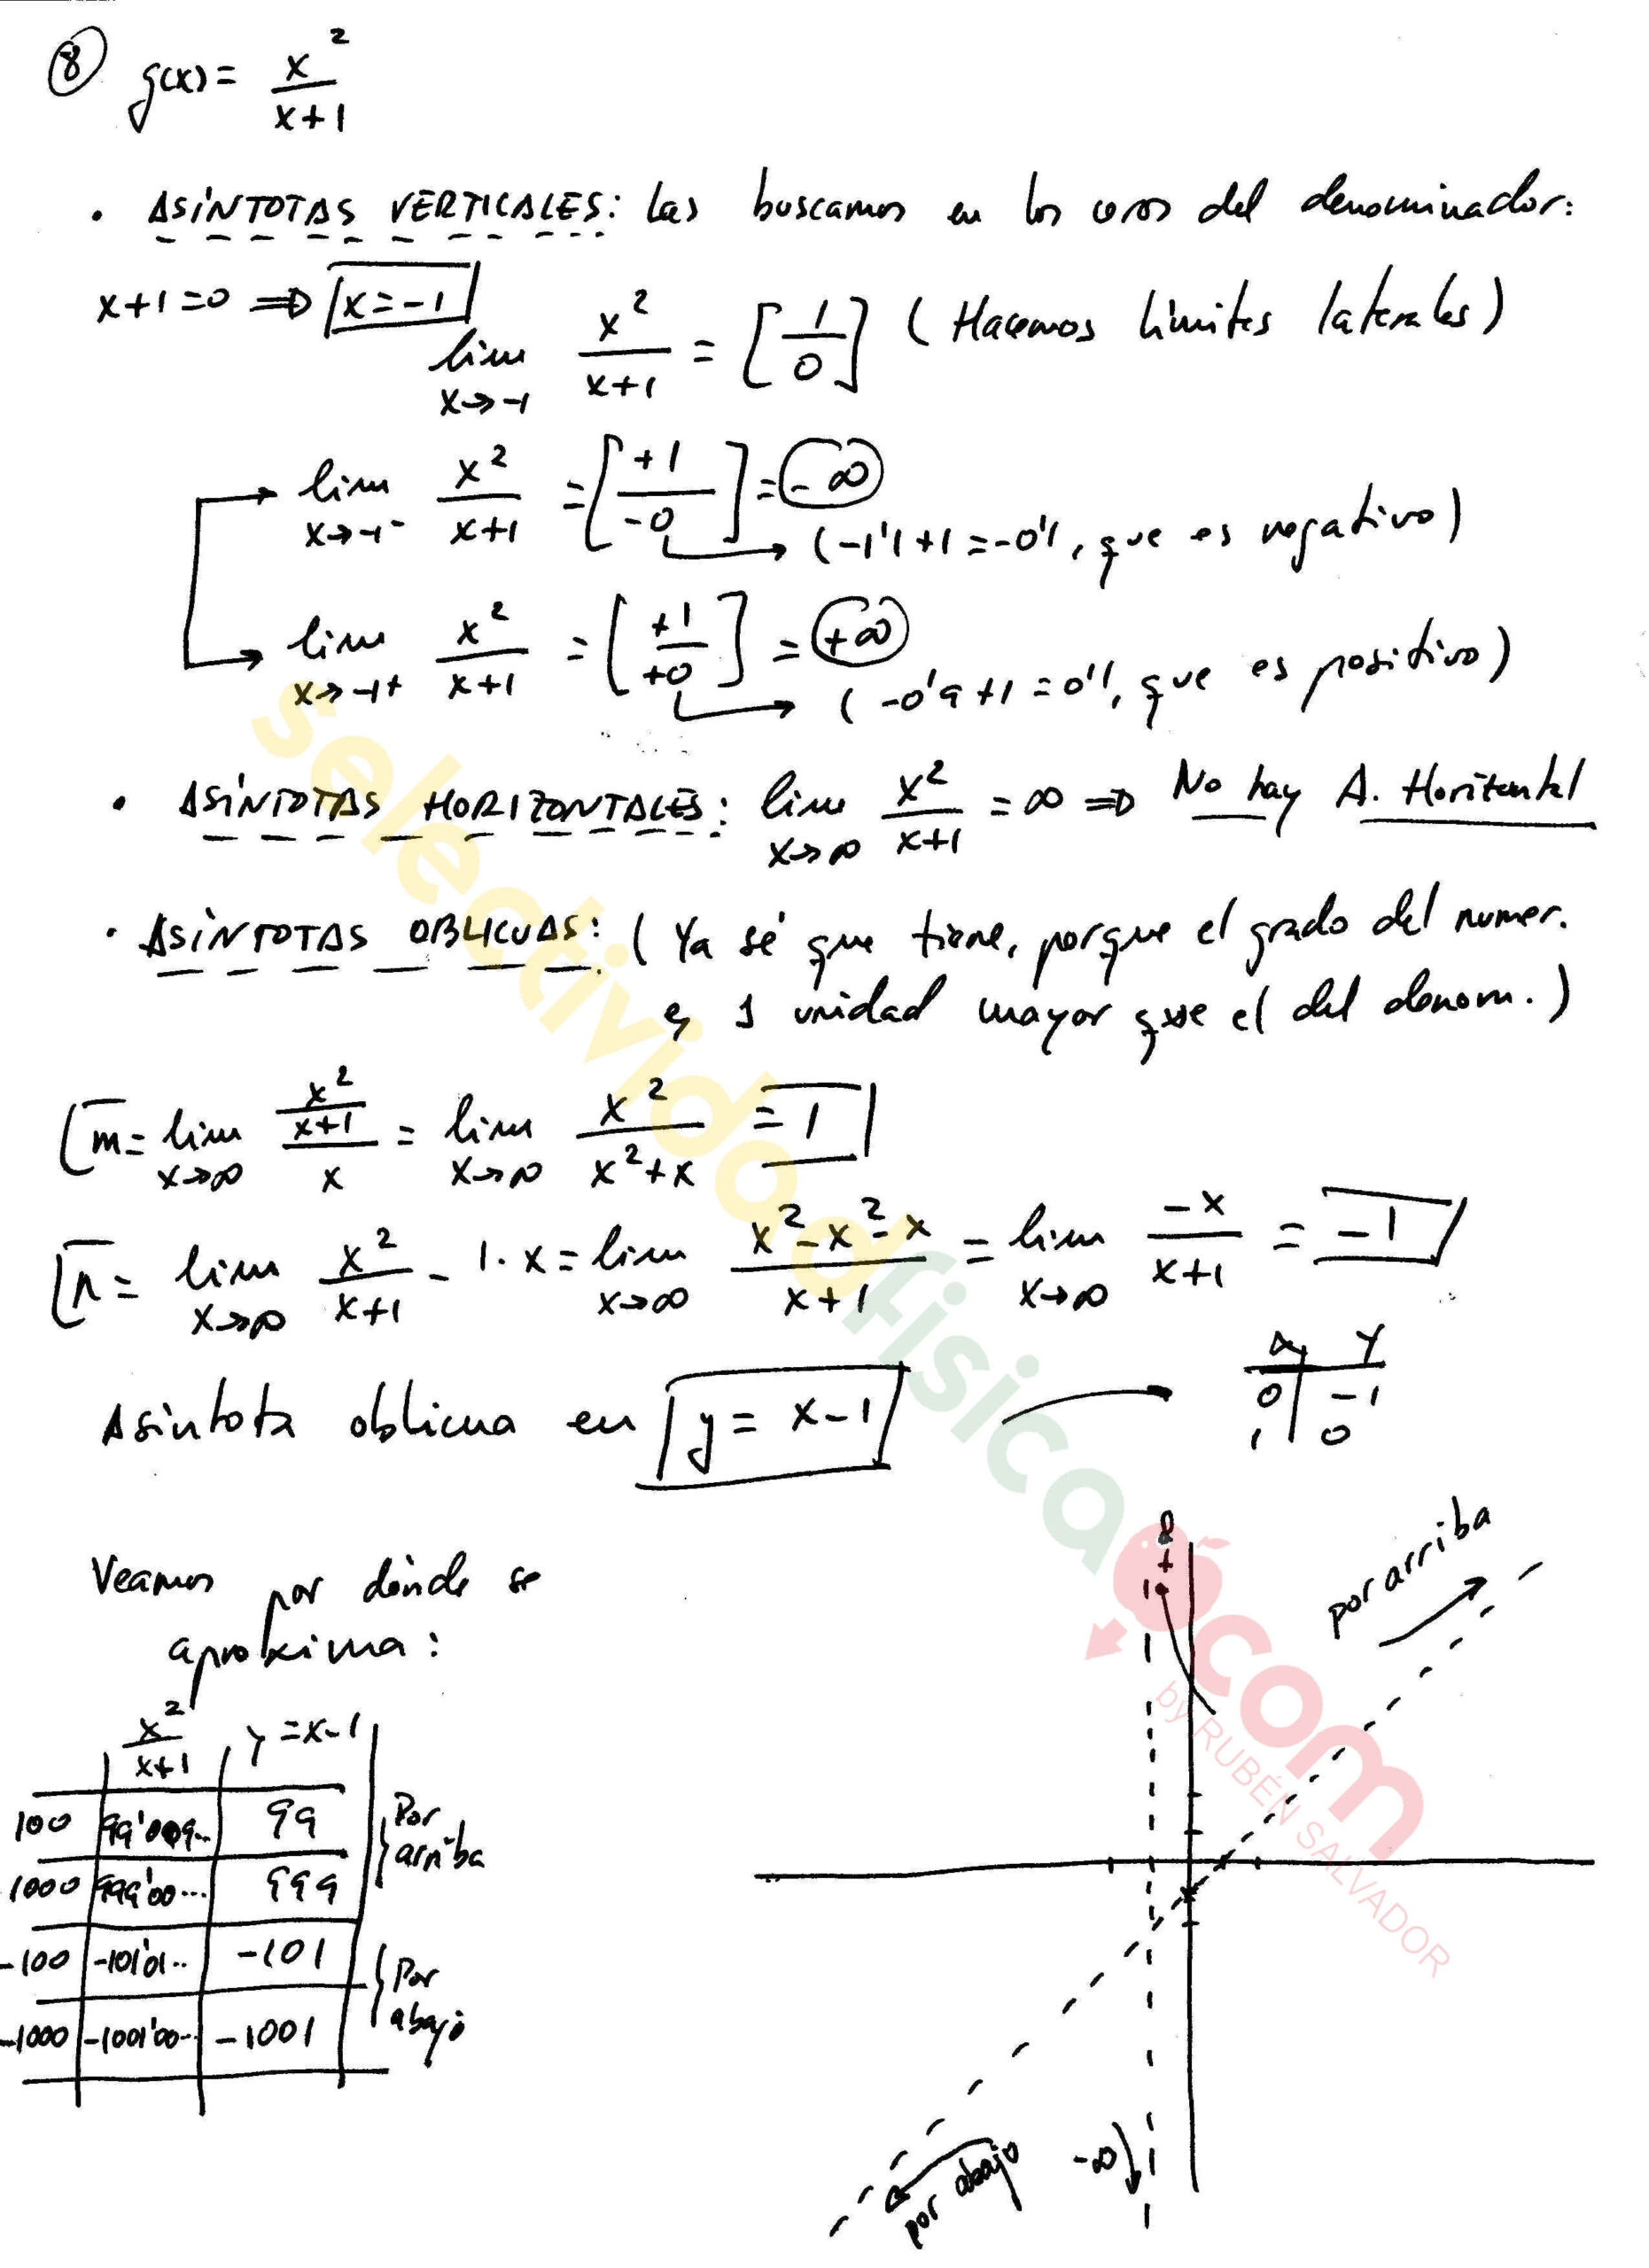 ⑧ g(x) = x² / (x+1)
• ASÍNTOTAS VERTICALES: Las buscamos en los ceros del denominador:
x+1=0 ⇒ x=-1
lim x→-1 x²/(x+1) = [1/0] (Hacemos límites laterales)
lim x→-1⁻ x²/(x+1) = [+1/-0] = -∞
(-1'1+1=-0'1, que es negativo)
lim x→-1⁺ x²/(x+1) = [+1/+0] = +∞
(-0'9+1=0'1, que es positivo)
• ASÍNTOTAS HORIZONTALES: lim x→∞ x²/(x+1) = ∞ ⇒ No hay A. Horizontal
• ASÍNTOTAS OBLICUAS: (Ya sé que tiene, porque el grado del numer.
es 1 unidad mayor que el del denom.)
m = lim x→∞ (x²/(x+1))/x = lim x→∞ x²/(x²+x) = 1
n = lim x→∞ x²/(x+1) - 1·x = lim x→∞ (x²-x²-x)/(x+1) = lim x→∞ -x/(x+1) = -1
Asíntota oblicua en y = x-1
x y
0 -1
1 0
Veamos por dónde se
aproxima:
x²/(x+1) y=x-1
100 99'009.. 99
1000 999'00... 999
Por
arriba
-100 -101'01.. -101
-1000 -1001'00.. -1001
Por
abajo
+∞
por arriba
-∞
por abajo
selectividadfisica.com
by RUBÉN SALVADOR